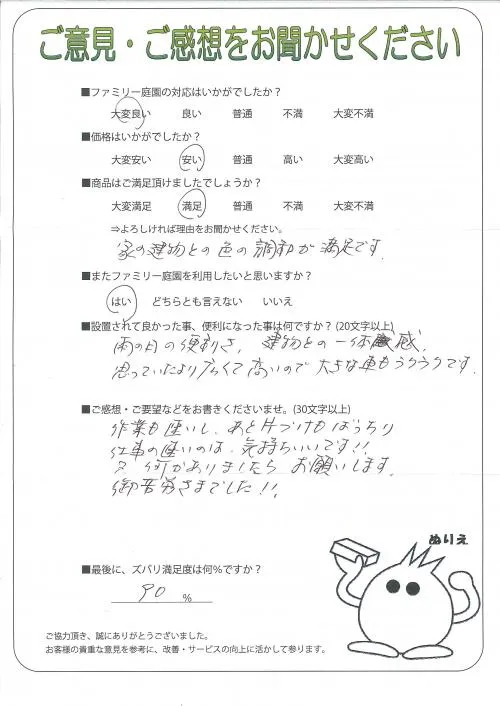 ご意見・ご感想をお聞かせください
■ファミリー庭園の対応はいかがでしたか？
大変良い 良い 普通 不満 大変不満
■価格はいかがでしたか？
大変安い 安い 普通 高い 大変高い
■商品はご満足頂けましたでしょうか？
大変満足 満足 普通 不満 大変不満
⇒よろしければ理由をお聞かせください。
家の建物との色の調和が満足です.
■またファミリー庭園を利用したいと思いますか？
はい どちらとも言えない いいえ
■設置されて良かった事、便利になった事は何ですか？(20文字以上)
雨の日の便利さ、建物との一体感.
思っていたより広くて高いので大きな車もラクラクです.
■ご感想・ご要望などをお書きくださいませ。(30文字以上)
作業も速いし、あと片づけもばっちり
仕事の速いのは、気持ちいいです!!
又何かありましたらお願いします.
御苦労さまでした!!
ぬりえ
■最後に、ズバリ満足度は何%ですか？
90 %
ご協力頂き、誠にありがとうございました。
お客様の貴重な意見を参考に、改善・サービスの向上に活かして参ります。